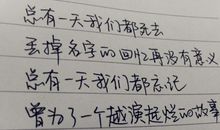 总有一天我们都死去
丢掉名字的回忆再没有意义
总有一天我们都忘记
曾为了一个越演越烂的故事